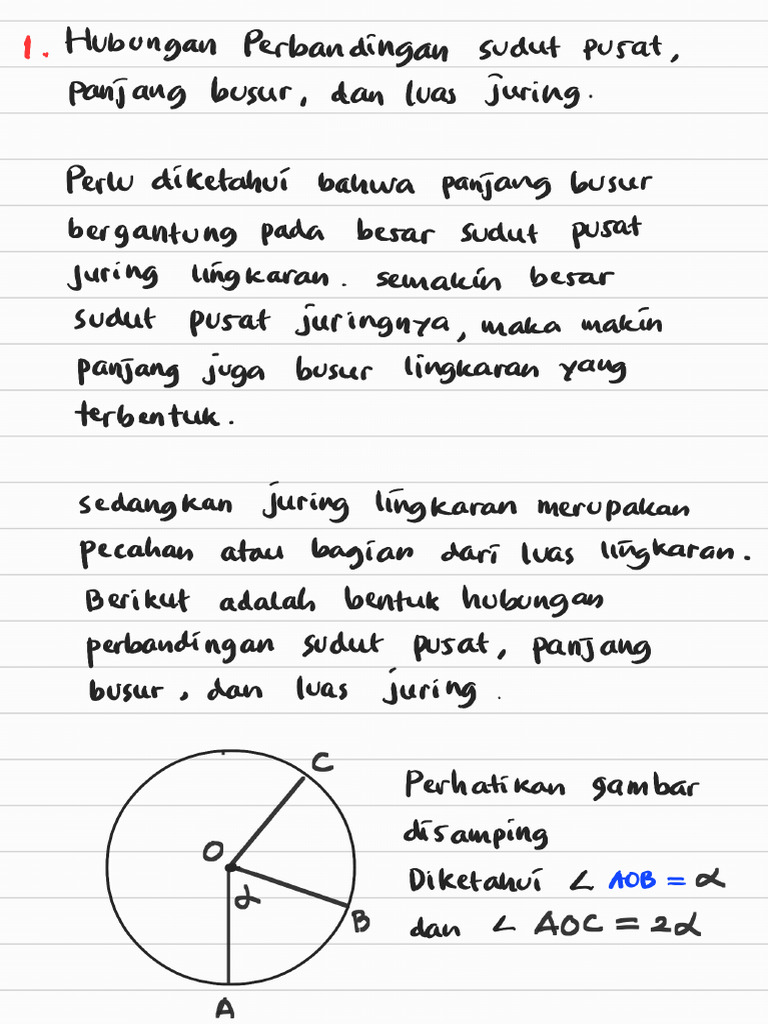 1. Hubungan Perbandingan sudut pusat,
panjang busur, dan luas juring.
Perlu diketahui bahwa panjang busur
bergantung pada besar sudut pusat
juring lingkaran. semakin besar
sudut pusat juringnya, maka makin
panjang juga busur lingkaran yang
terbentuk.
sedangkan juring lingkaran merupakan
pecahan atau bagian dari luas lingkaran.
Berikut adalah bentuk hubungan
perbandingan sudut pusat, panjang
busur, dan luas juring.
C
O
α
B
A
Perhatikan gambar
disamping
Diketahui ∠ AOB = α
dan ∠ AOC = 2α